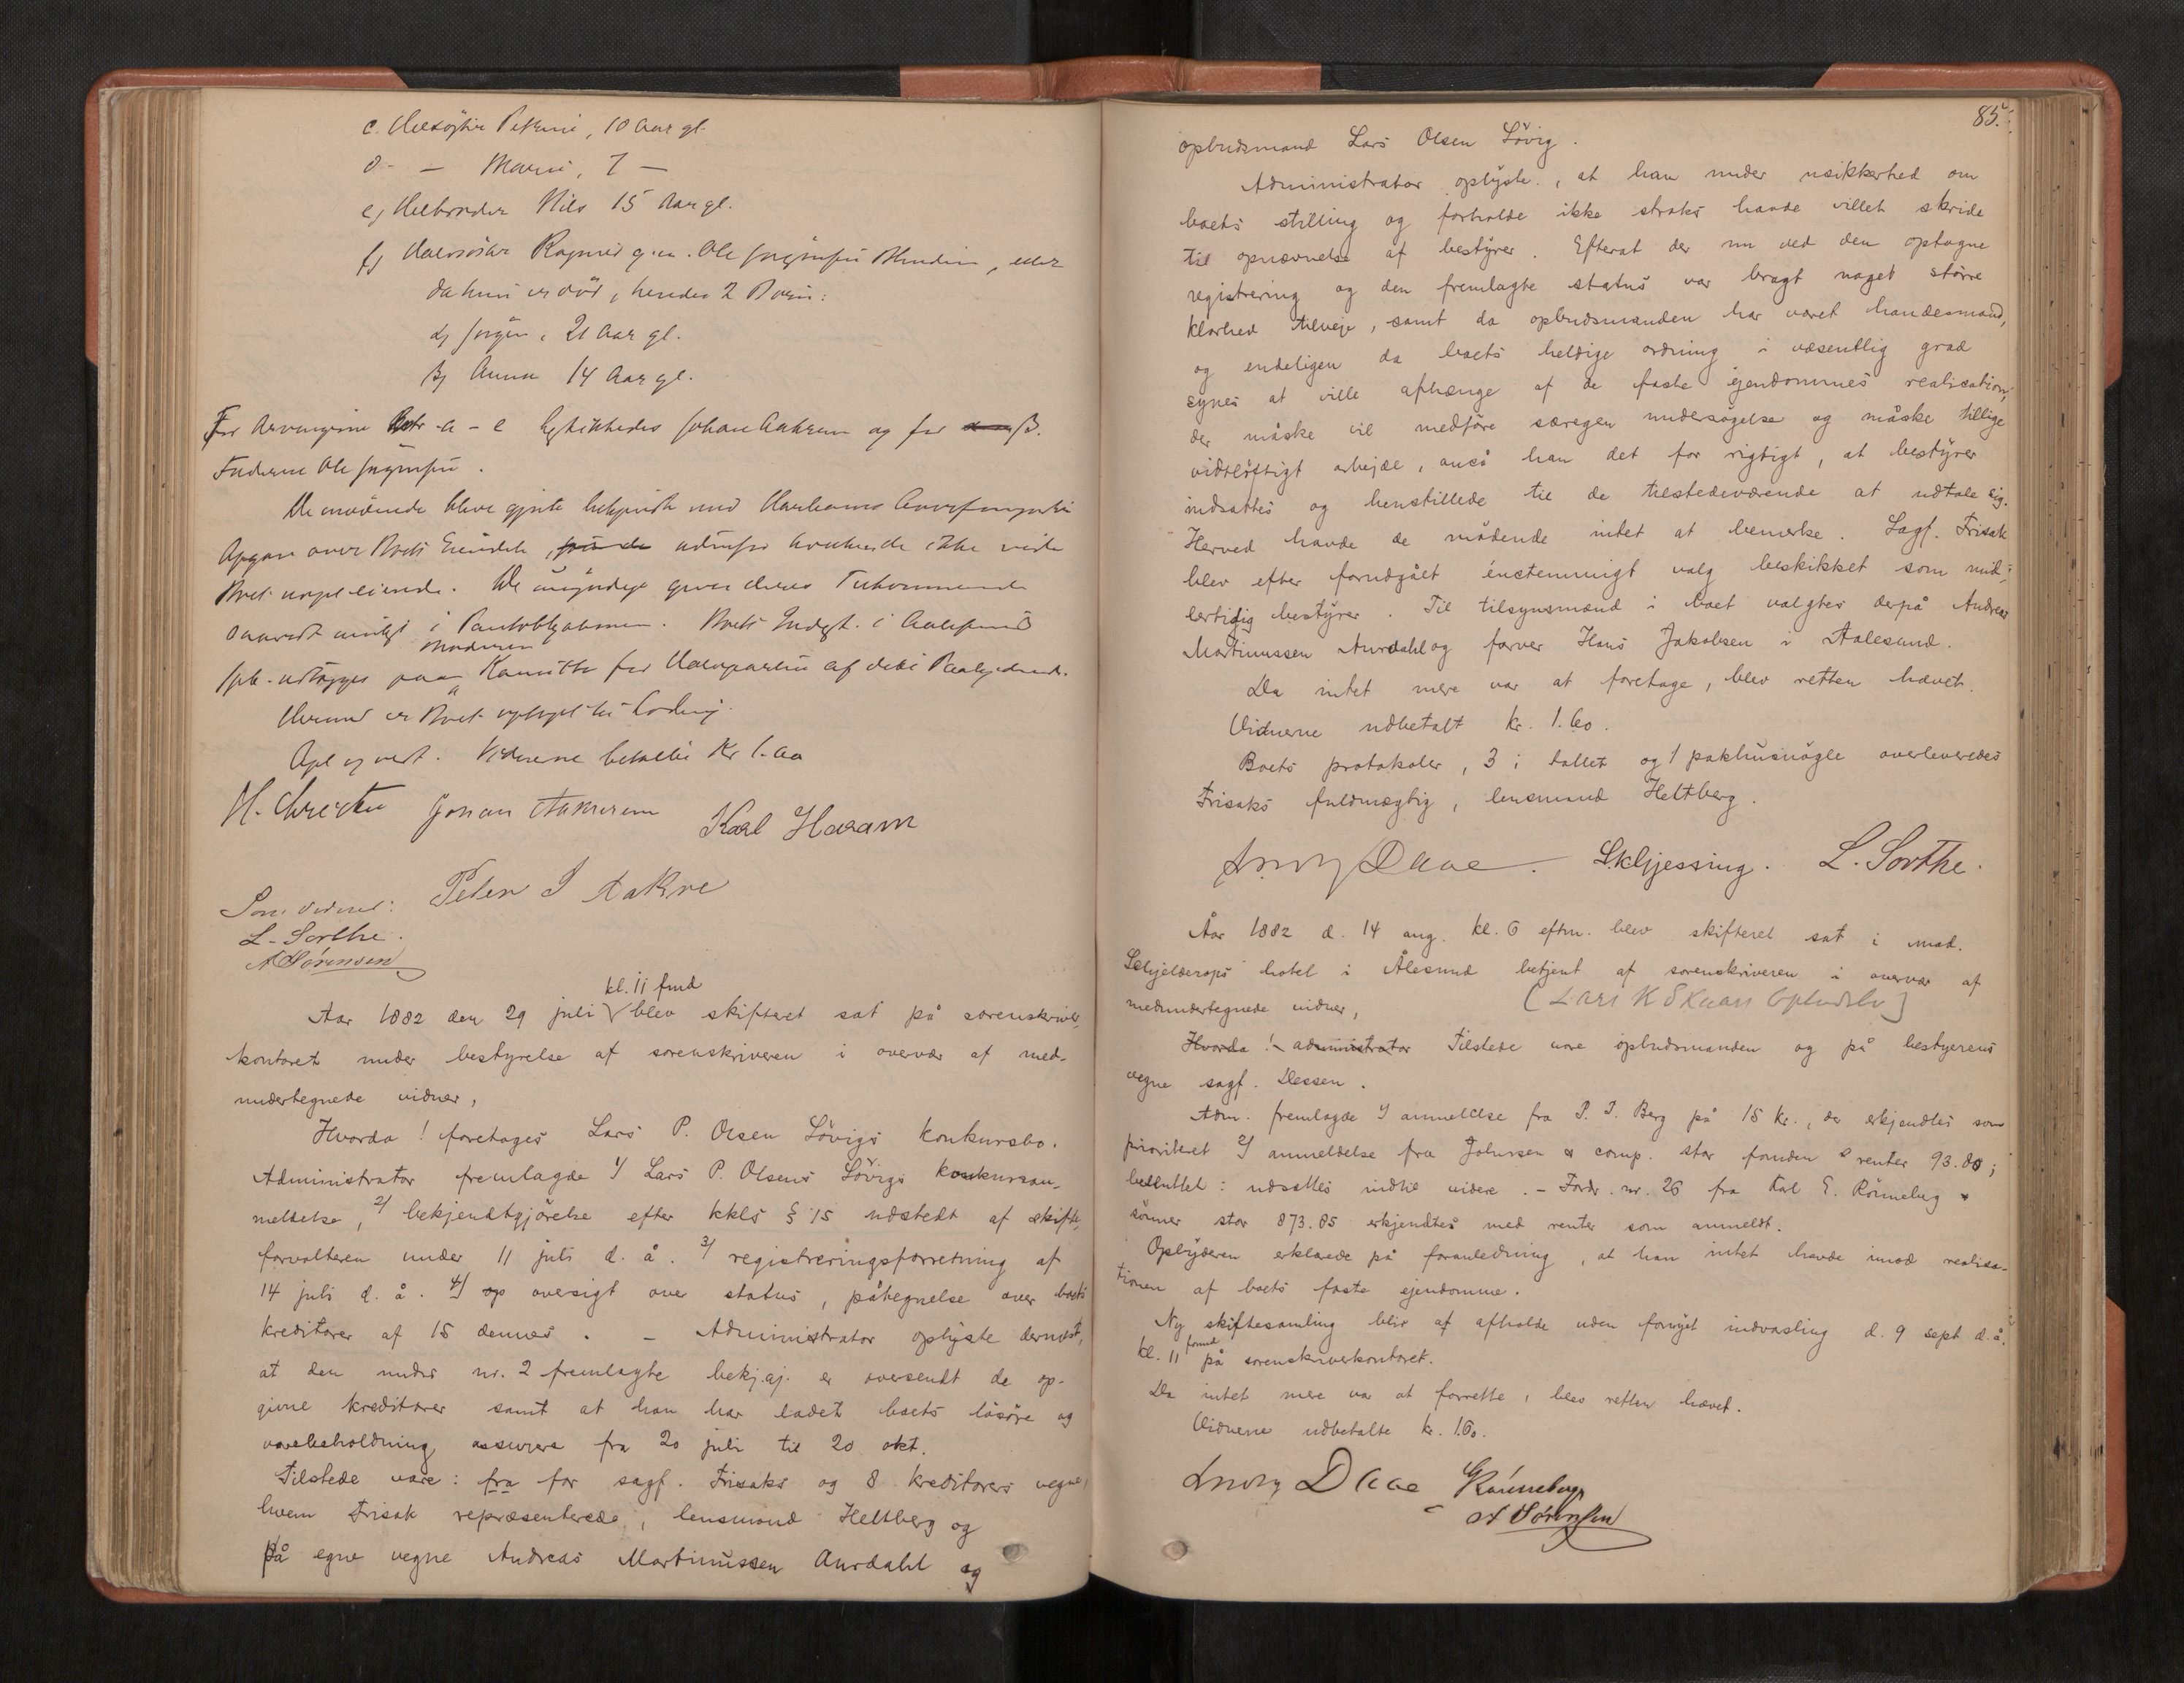 c. Helsöster Petrine, 10 Aar gl.
d - - Marie, 7 -
e) Helbroder Nils 15 Aar gl.
f) Halvsöster Ragnild g. m. Ole Jörgensen, eller
da hun er död, hendes 2 Börn:
α) Jörgen, 21 Aar gl.
β) Anna 14 Aar gl.
For Arvingerne Litr a - e beskikkedes Johan Aakrem og for β.
Faderen Ole Jörgensen.
De mödende bleve gjorte bekjendt med
Opgav over Boets Eiendele, ikke
Boet. De umyndige
i Pantobligationen. Boets Indgt. i Aalesunds
Spb. udlægges paa Moderen
Hermed er Boet
Opl og vedt. Vidnerne betaltes Kr 1.60
Johan Aakrem Karl Haram
Peter J Aakre
Som Vidner:
L. Sorthe.
A Sörensen
kl. 11 fmd
Aar 1882 den 29 juli blev skifteret sat på sorenskriver,
kontoret under bestyrelse af sorenskriveren i overvær af med-
undertegnede vidner,
Hvorda! foretoges Lars P. Olsen Lövigs konkursbo.
Administrator fremlagde 1/ Lars P. Olsens Lövigs konkursan-
meldelse, 2/ bekjendtgjörelse efter kkls § 15 udstedt af skifte,
forvalteren under 11 juli d. å. 3/ registreringsforretning af
14 juli d. å. 4/ op oversigt over status, påtegnelse over boets
kreditorer af 15 dennes. - Administrator oplyste dernæst,
at den under nr. 2 fremlagte bekj.gj. er oversendt de op-
givne kreditorer samt at han har ladet boets lösöre og
varebeholdning assurere fra 20 juli til 20 okt.
Tilstede vare: fra for sagf. Frisaks og 8 kreditorers vegne,
hvem Frisak repræsenterede, lensmand Heltberg og
på egne vegne Andreas Martinussen Aurdahl og
85.
opbudsmand Lars Olsen Lövig.
Administrator oplyste, at han under usikkerhed om
boets stilling og forholde ikke straks havde villet skride
til opnævnelse af bestyrer. Efterat der nu ved den optagne
registrering og den fremlagte status var bragt noget större
klarhed tilveje, samt da opbudsmanden har været handesmand,
og endeligen da boets heldige ordning i væsentlig grad
synes at ville afhænge af de faste ejendommes realisation,
der måske vil medföre særegen undersögelse og måske tillige
vidtlöftigt arbejde, anså han det for rigtigt, at bestyrer
indsattes og henstillede til de tilstedeværende at udtale sig.
Herved havde de mödende intet at bemerke. Sagf. Frisak
blev efter forudgået énstemmigt valg beskikket som mid-
lertidig bestyrer. Til tilsynsmænd i boet valgtes derpå Andreas
Martinussen Aurdahl og farver Hans Jakobsen i Aalesund.
Da intet mere var at foretage, blev retten hævet.
Vidnerne udbetalt kr. 1.60.
Boets protokoler, 3 i tallet og 1 pakhusnögle overleveredes
Frisaks fuldmægtig, lensmand Heltberg.
Daae. S.Kljessing. L. Sorthe.
Aar 1882 d. 14 aug. kl. 6 eftm. blev skifteret sat i mad.
Schjelderops hotel i Ålesund betjent af sorenskriveren i overvær af
medundertegnede vidner, (Lars K Skuan Opbudsbo)
Hvorda! administrator Tilstede vare opbudsmanden og på bestyrerens
vegne sagf. Dessen.
Adm. fremlagde 1/ anmeldelse fra P. I. Berg på 15 kr., der erkjendtes som
prioriteret 2/ anmeldelse fra Johnsen & comp. stor foruden renter 93.80;
besluttet: udsattes indtil videre. - Fordr. nr. 26 fra Kal E. Rönneberg &
sönner stor 873.85 erkjendtes med renter som anmeldt.
Opbyderen erklærede på foranledning, at han intet havde imod realisa-
tionen af boets faste ejendomme.
Ny skiftesamling blir at afholde uden fornyet indvarsling d. 9 sept d. å.
kl. 11 formd på sorenskriverkontoret.
Da intet mere var at forrette, blev retten hævet.
Vidnerne udbetalte kr. 1.60.
Daae Rönneberg
A Sörensen